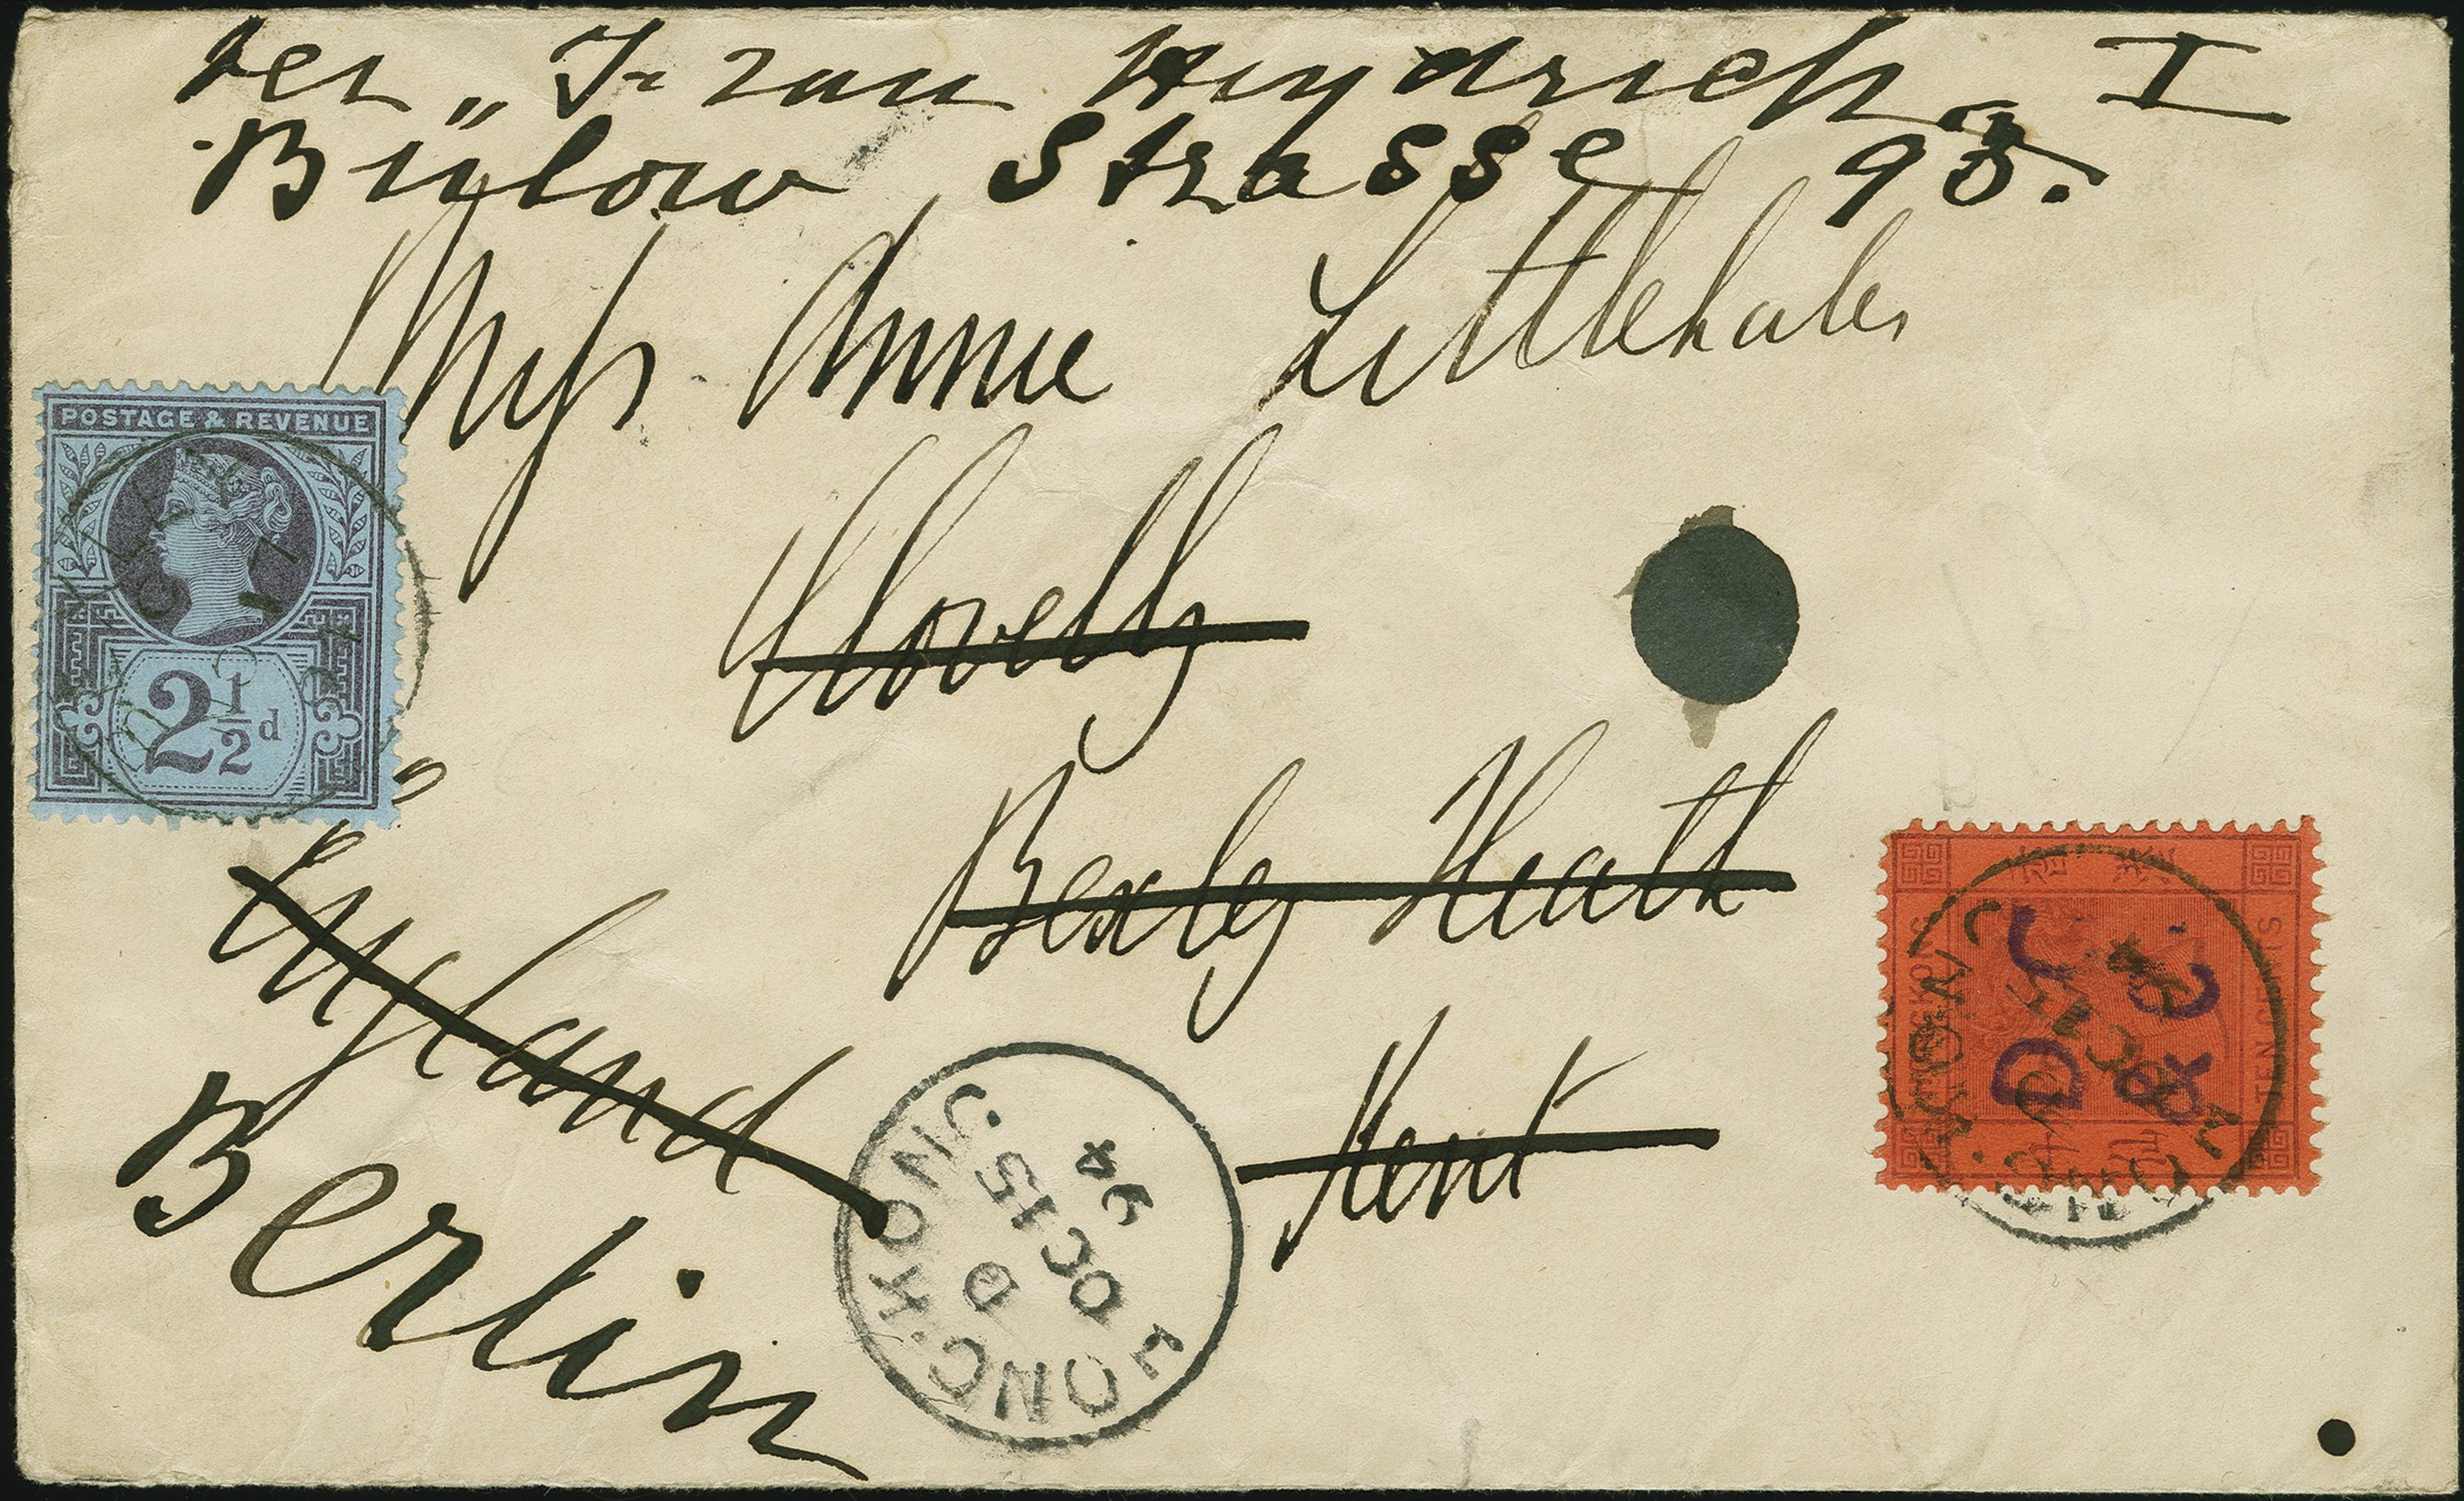 bei "Frau Heydrich. I
Bülow Strasse 93.
Miss Annie Littlehales
Clovelly
Bexley Heath
Kent
England
Berlin
POSTAGE & REVENUE
2½d
HONG KONG
D
OC 15
94
HONG KONG
TEN CENTS
D & C